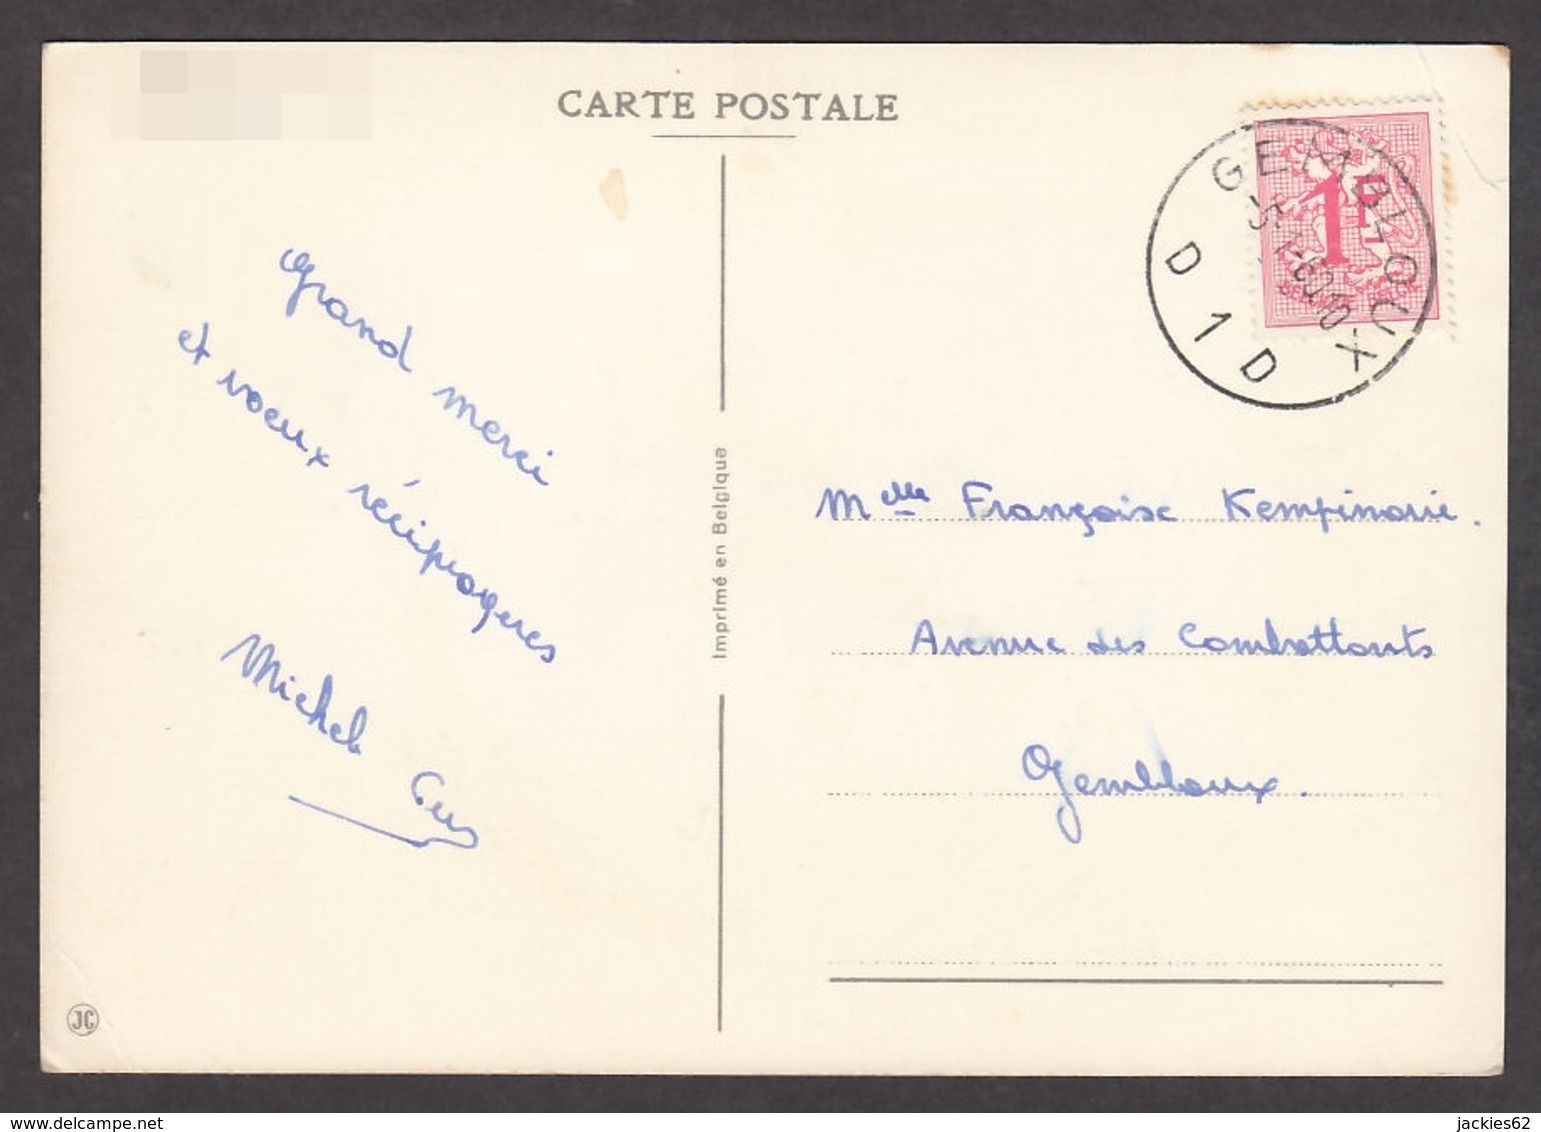 CARTE POSTALE
GEMBLOUX
5-1-60.10
D 1 D
1F
Grand merci
et voeux réciproques
Michel
Imprimé en Belgique
Melle Françoise Kempinaire.
Avenue des Combattants
Gembloux.
JC
www.delcampe.net
jackies62